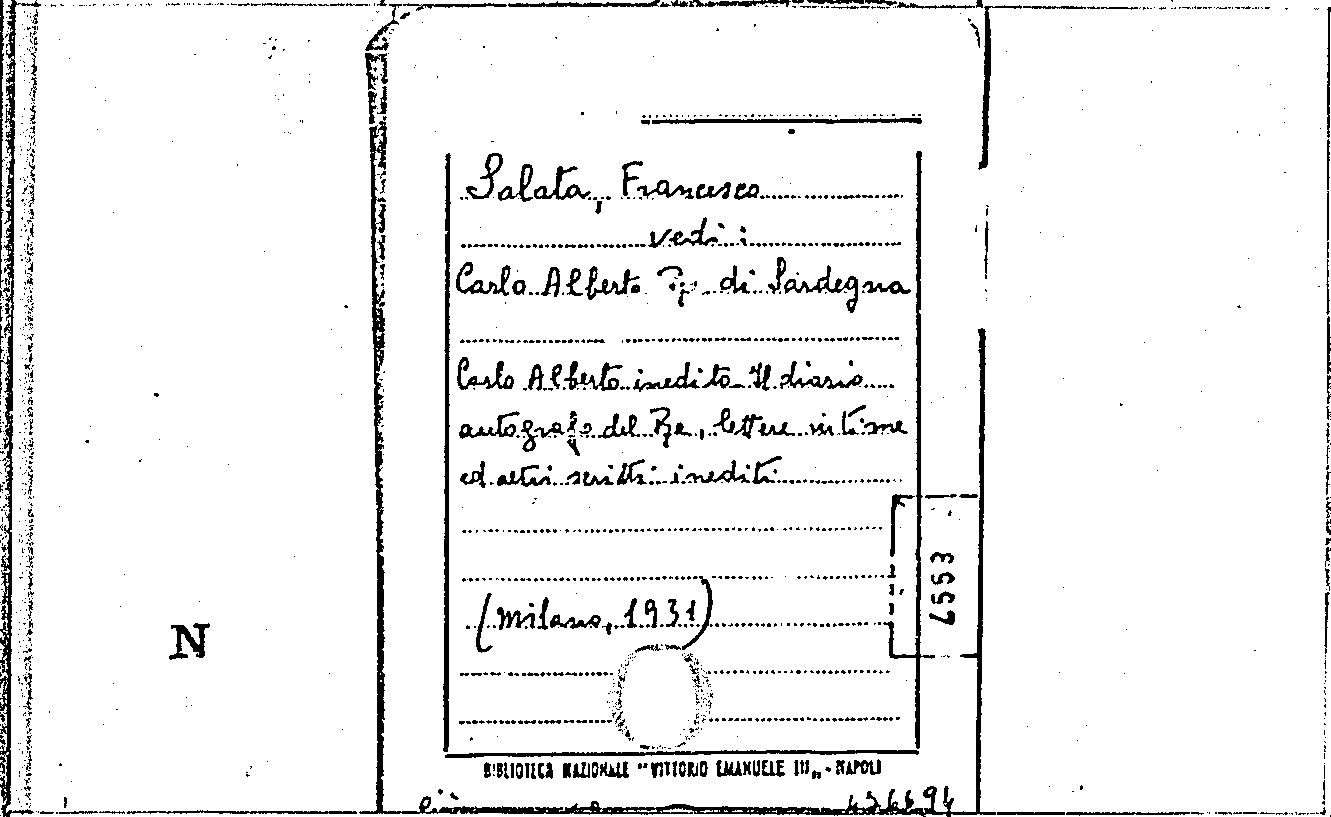 Salata, Francesco
vedi :
Carlo Alberto Re di Sardegna
Carlo Alberto inedito Il diario
autografo del Re, lettere intime
ed altri scritti inediti
(Milano, 1931)
4553
N
BIBLIOTECA NAZIONALE "VITTORIO EMANUELE III„ - NAPOLI